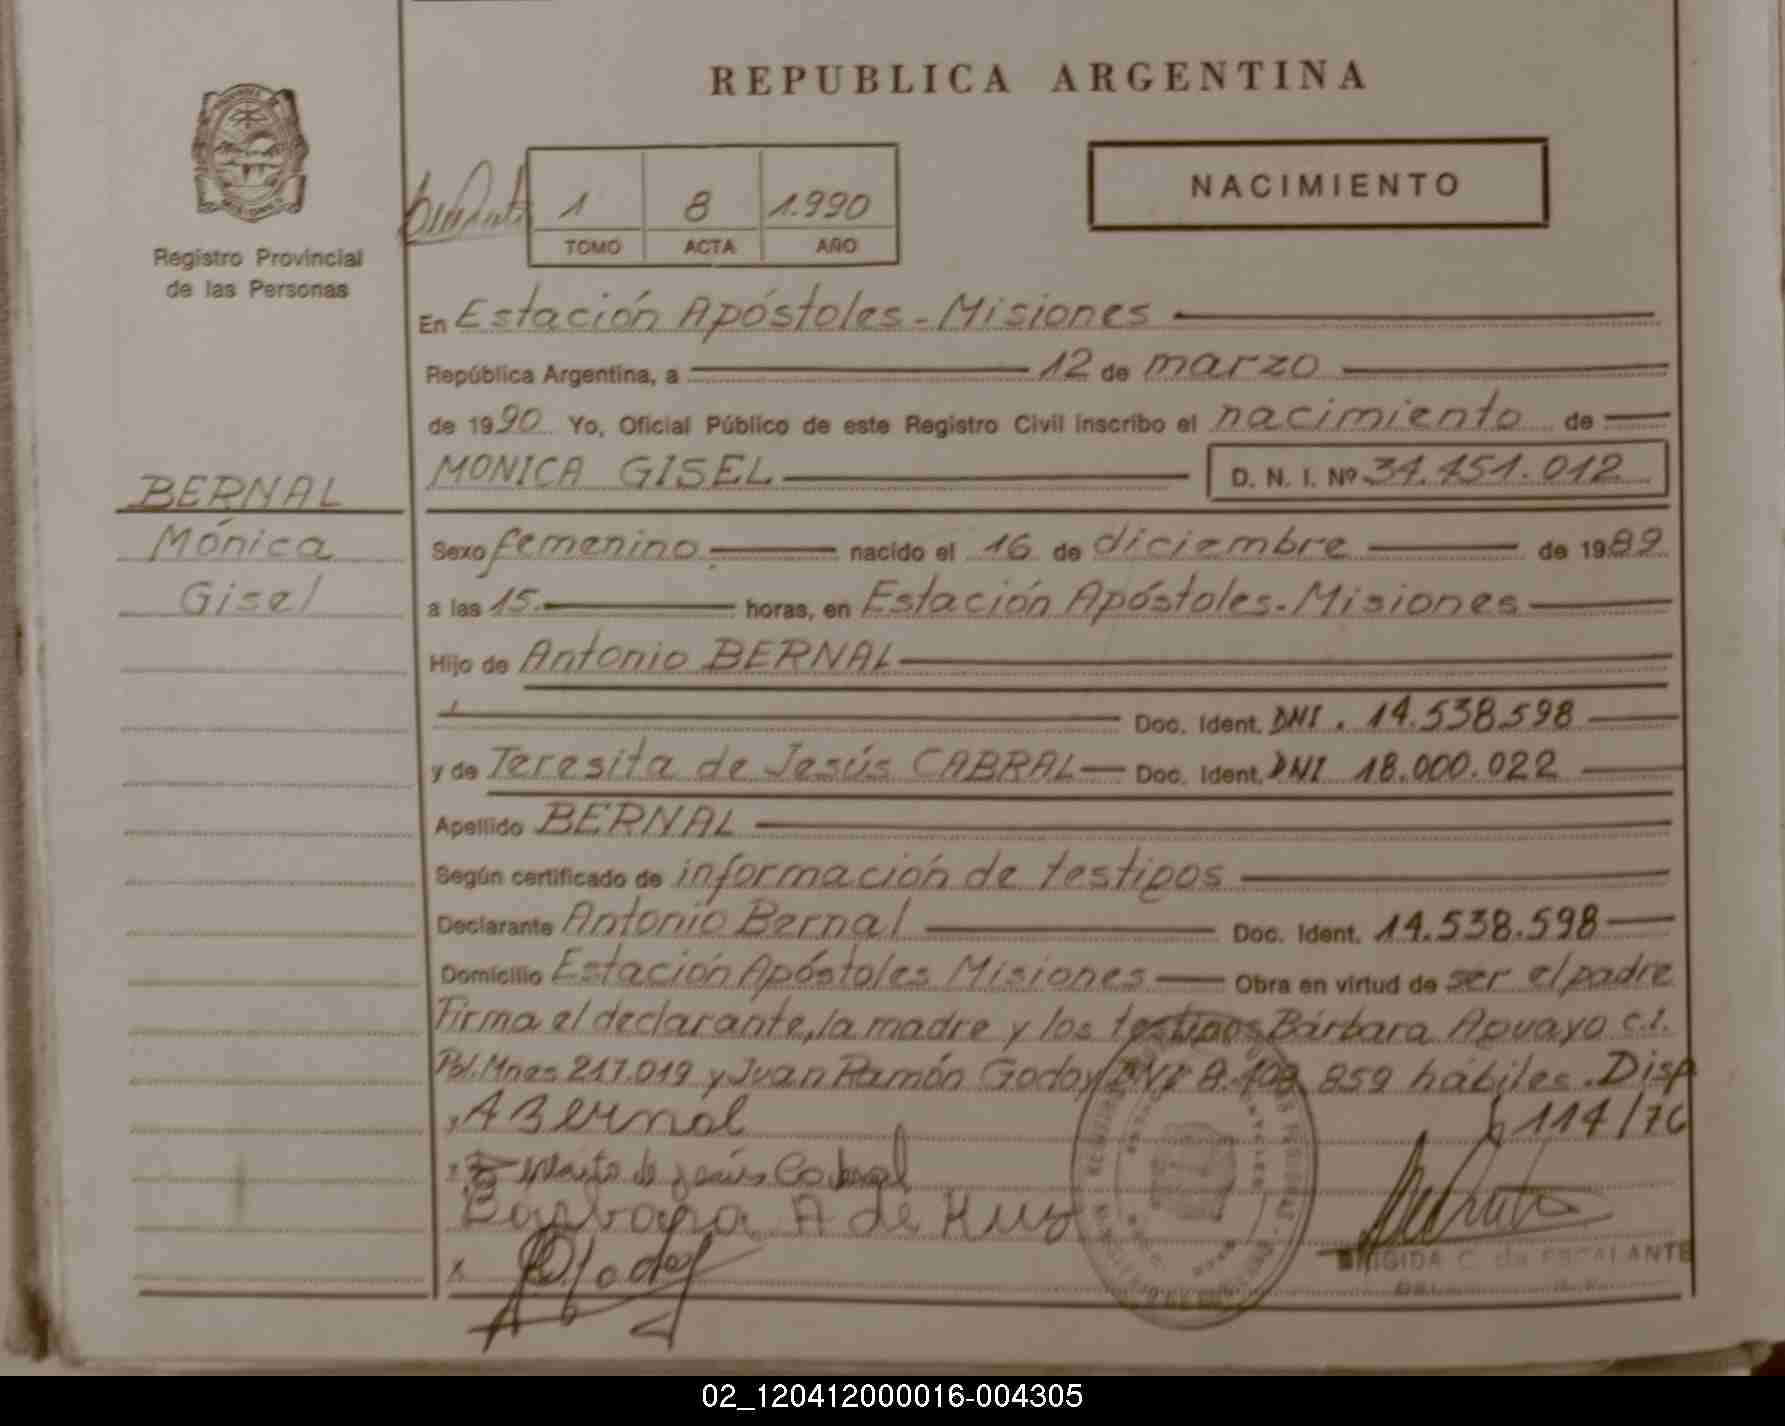 REPUBLICA ARGENTINA
Registro Provincial
de las Personas
1 8 1.990
TOMO ACTA AÑO
NACIMIENTO
En Estación Apóstoles - Misiones
República Argentina, a 12 de marzo
de 1990 Yo, Oficial Público de este Registro Civil inscribo el nacimiento de
BERNAL
Mónica
Gisel
MONICA GISEL D. N. I. Nº 34.451.012
Sexo femenino nacido el 16 de diciembre de 1989
a las 15. horas, en Estación Apóstoles. Misiones
Hijo de Antonio BERNAL
Doc. Ident. DNI. 14.538.598
y de Teresita de Jesús CABRAL Doc. Ident. DNI 18.000.022
Apellido BERNAL
Según certificado de información de testigos
Declarante Antonio Bernal Doc. Ident. 14.538.598
Domicilio Estación Apóstoles Misiones Obra en virtud de ser el padre
Firma el declarante, la madre y los testigos Bárbara Aguayo c.I.
Pol. Mnes 217.019 y Juan Ramón Godoy DNI 859 hábiles. Disp
114/76
A Bernal
de Jesús Cabral
Barbara A de
BRIGIDA C. de ESCALANTE
02_120412000016-004305